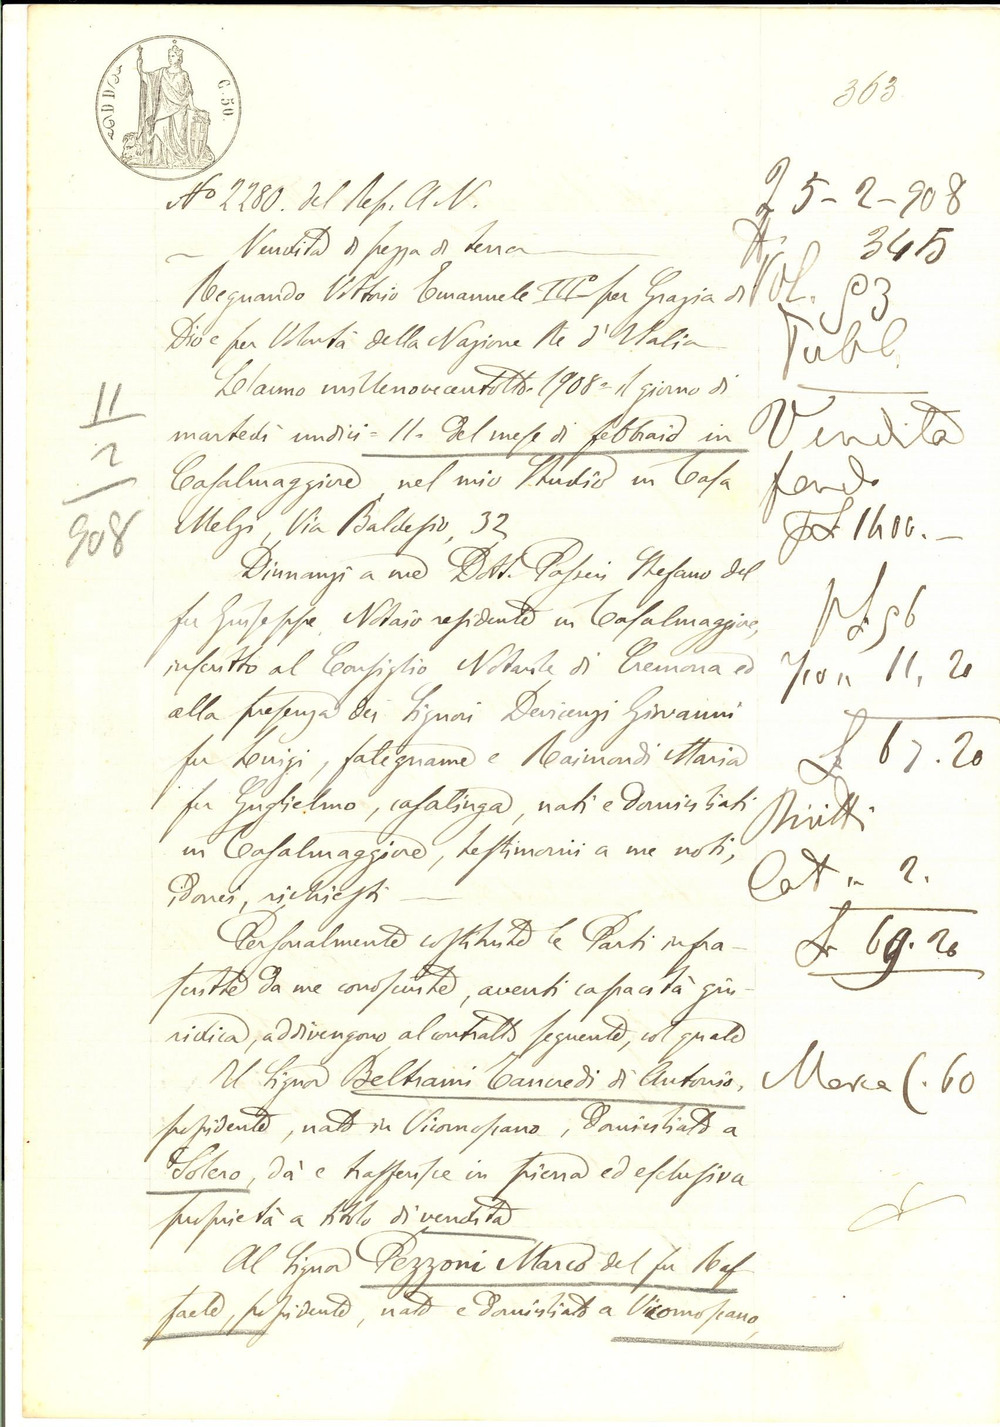 C. 50.
363
N° 2280. del Rep. A. N.
Vendita di pezza di terra
Regnando Vittorio Emanuele III° per Grazia di
Dio e per Volontà della Nazione Re d'Italia
L'anno millenovecentotto = 1908 = il giorno di
martedì undici = 11 = del mese di febbraio in
Casalmaggiore, nel mio Studio in Casa
Melzi, Via Baldesio, 32
Dinnanzi a me Dott. Passeri Stefano del
fu Giuseppe, Notaio residente in Casalmaggiore,
inscritto al Consiglio Notarile di Cremona ed
alla presenza dei Signori Devicenzi Giovanni
fu Luigi, falegname e Raimondi Maria
fu Guglielmo, casalinga, nati e domiciliati
in Casalmaggiore, testimoni a me noti,
idonei, richiesti
Personalmente costituite le Parti infra-
scritte da me conosciute, aventi capacità giu-
ridica, addivengono al contratto seguente, col quale
Il Signor Beltrami Tancredi di Antonio,
possidente, nato in Vicomoscano, domiciliato a
Solero, dà e trasferisce in piena ed esclusiva
proprietà a titolo di vendita
Al Signor Pezzoni Marco del fu Raf
faele, possidente, nato e domiciliato a Vicomoscano,
11
2
908
25-2-908
N. 345
Vol. 93
Pubb.
Vendita
fondo
p £ 1400.-
p £ 56
11,20
£ 67.20
Diritti
Cat " 2.
£ 69.20
Marca C. 60